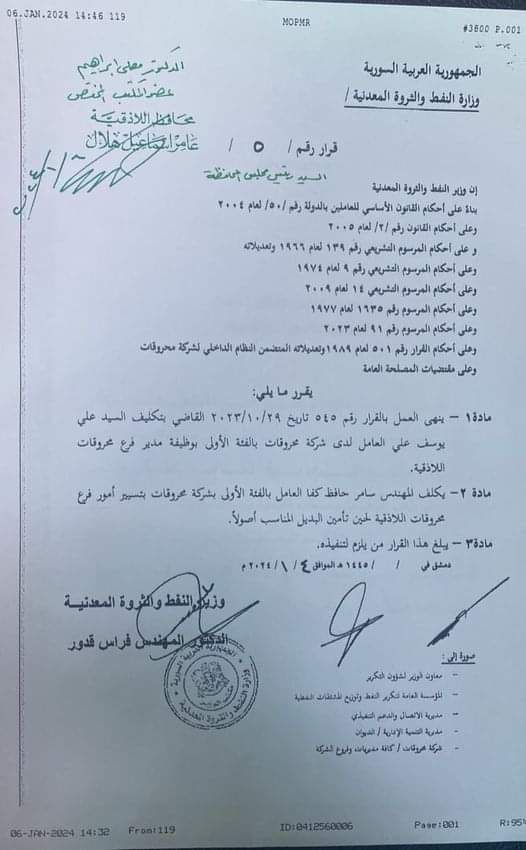 06.JAN.2024 14:46 119
MOPMR
#3800 P.001
الجمهورية العربية السورية
وزارة النفط والثروة المعدنية /
الدكتور معلى ابراهيم
عضو المكتب المختص
محافظ اللاذقية
عامر اسماعيل هلال
قرار رقم / ٥ /
السيد رئيس مجلس المحافظة
إن وزير النفط والثروة المعدنية
بناءً على أحكام القانون الأساسي للعاملين بالدولة رقم /٥٠/ لعام ٢٠٠٤
وعلى أحكام القانون رقم /٢/ لعام ٢٠٠٥
و على أحكام المرسوم التشريعي رقم ١٣٩ لعام ١٩٦٦ وتعديلاته
وعلى أحكام المرسوم التشريعي رقم ٩ لعام ١٩٧٤
وعلى أحكام المرسوم التشريعي ١٤ لعام ٢٠٠٩
وعلى أحكام المرسوم رقم ١٦٣٥ لعام ١٩٧٧
وعلى أحكام المرسوم رقم ٩١ لعام ٢٠٢٣
وعلى أحكام القرار رقم ٥٠١ لعام ١٩٨٩ وتعديلاته المتضمن النظام الداخلي لشركة محروقات
وعلى مقتضيات المصلحة العامة
يقرر ما يلي:
مادة١ – ينهى العمل بالقرار رقم ٥٤٥ تاريخ ٢٠٢٣/١٠/٢٩ القاضي بتكليف السيد علي
يوسف علي العامل لدى شركة محروقات بالفئة الأولى بوظيفة مدير فرع محروقات
اللاذقية.
مادة ٢– يكلف المهندس سامر حافظ كفا العامل بالفئة الأولى بشركة محروقات بتسيير أمور فرع
محروقات اللاذقية لحين تأمين البديل المناسب أصولاً.
مادة٣ – يبلغ هذا القرار من يلزم لتنفيذه.
دمشق في / / ١٤٤٥ هـ الموافق ٤ / ١ / ٢٠٢٤ م
وزير النفط والثروة المعدنية
الدكتور المهندس فراس قدور
الجمهورية العربية السورية
وزارة النفط والثروة المعدنية
صورة إلى :
– معاون الوزير لشؤون التكرير
– المؤسسة العامة لتكرير النفط وتوزيع المشتقات النفطية
– مديرية الاتصال والدعم التنفيذي
– مديرية التنمية الإدارية / الديوان
– شركة محروقات / كافة مديريات وفروع الشركة
06-JAN-2024 14:32 From:119 ID:0412560006 Page:001 R:95%